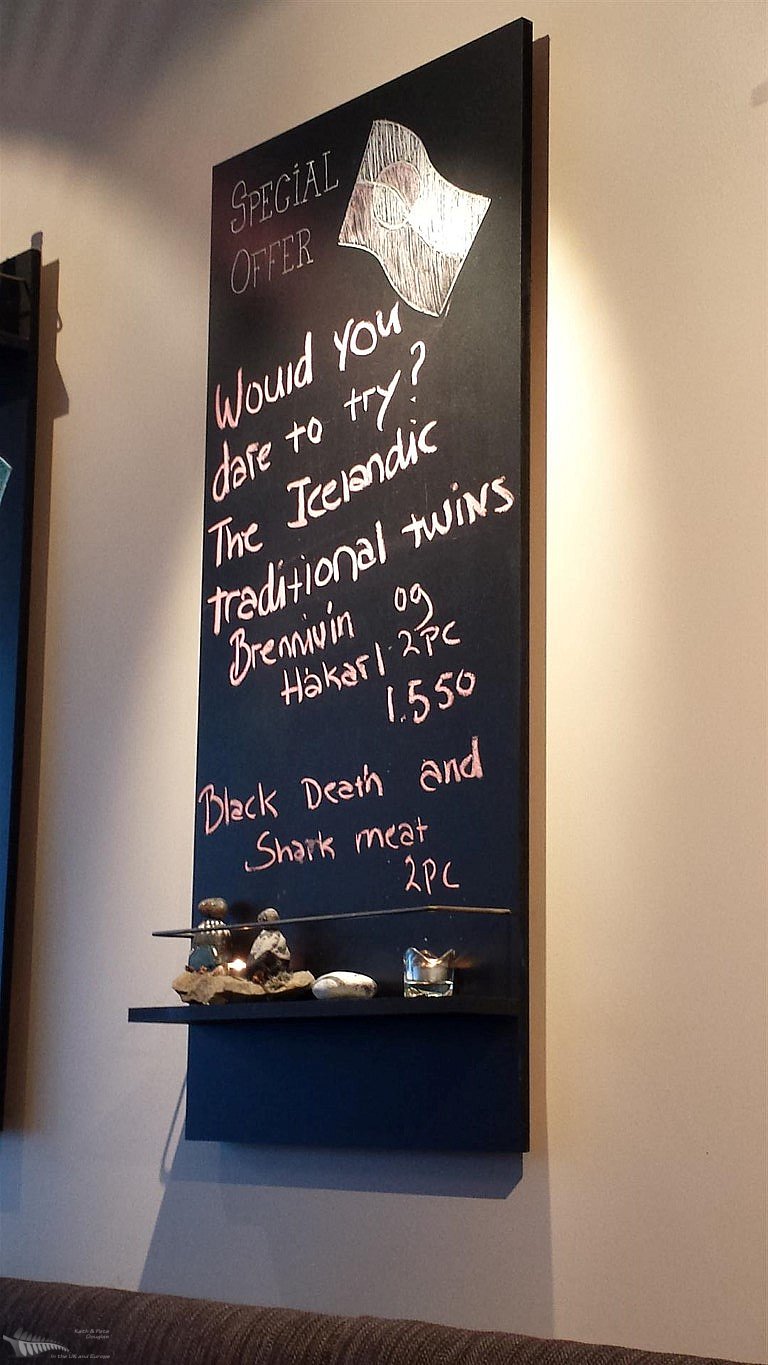 SPECIAL
OFFER
Would you
dare to try?
The Icelandic
traditional twins
Brennivín og
Hákarl 2PC
1.550
Black Death and
Shark meat
2PC
Kath & Pete
Douglas
in the UK and Europe